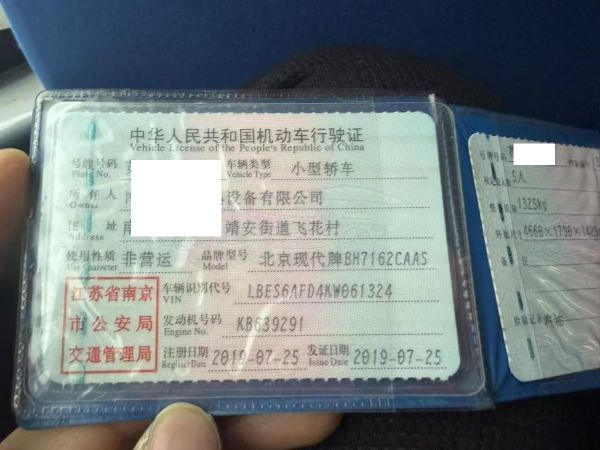 中华人民共和国机动车行驶证
Vehicle License of the People's Republic of China
号牌号码 车辆类型 小型轿车
Plate No. Vehicle Type
所有人 设备有限公司
Owner
住址 靖安街道飞花村
Address
使用性质 非营运 品牌型号 北京现代牌BH7162CAAS
Use Character Model
江苏省南京
市公安局
交通管理局
车辆识别代号 LBES6AFD4KW061324
VIN
发动机号码 KB639291
Engine No.
注册日期 2019-07-25 发证日期 2019-07-25
Register Date Issue Date
号牌号码
5人
1325kg
外廓尺寸
备注
检验记录